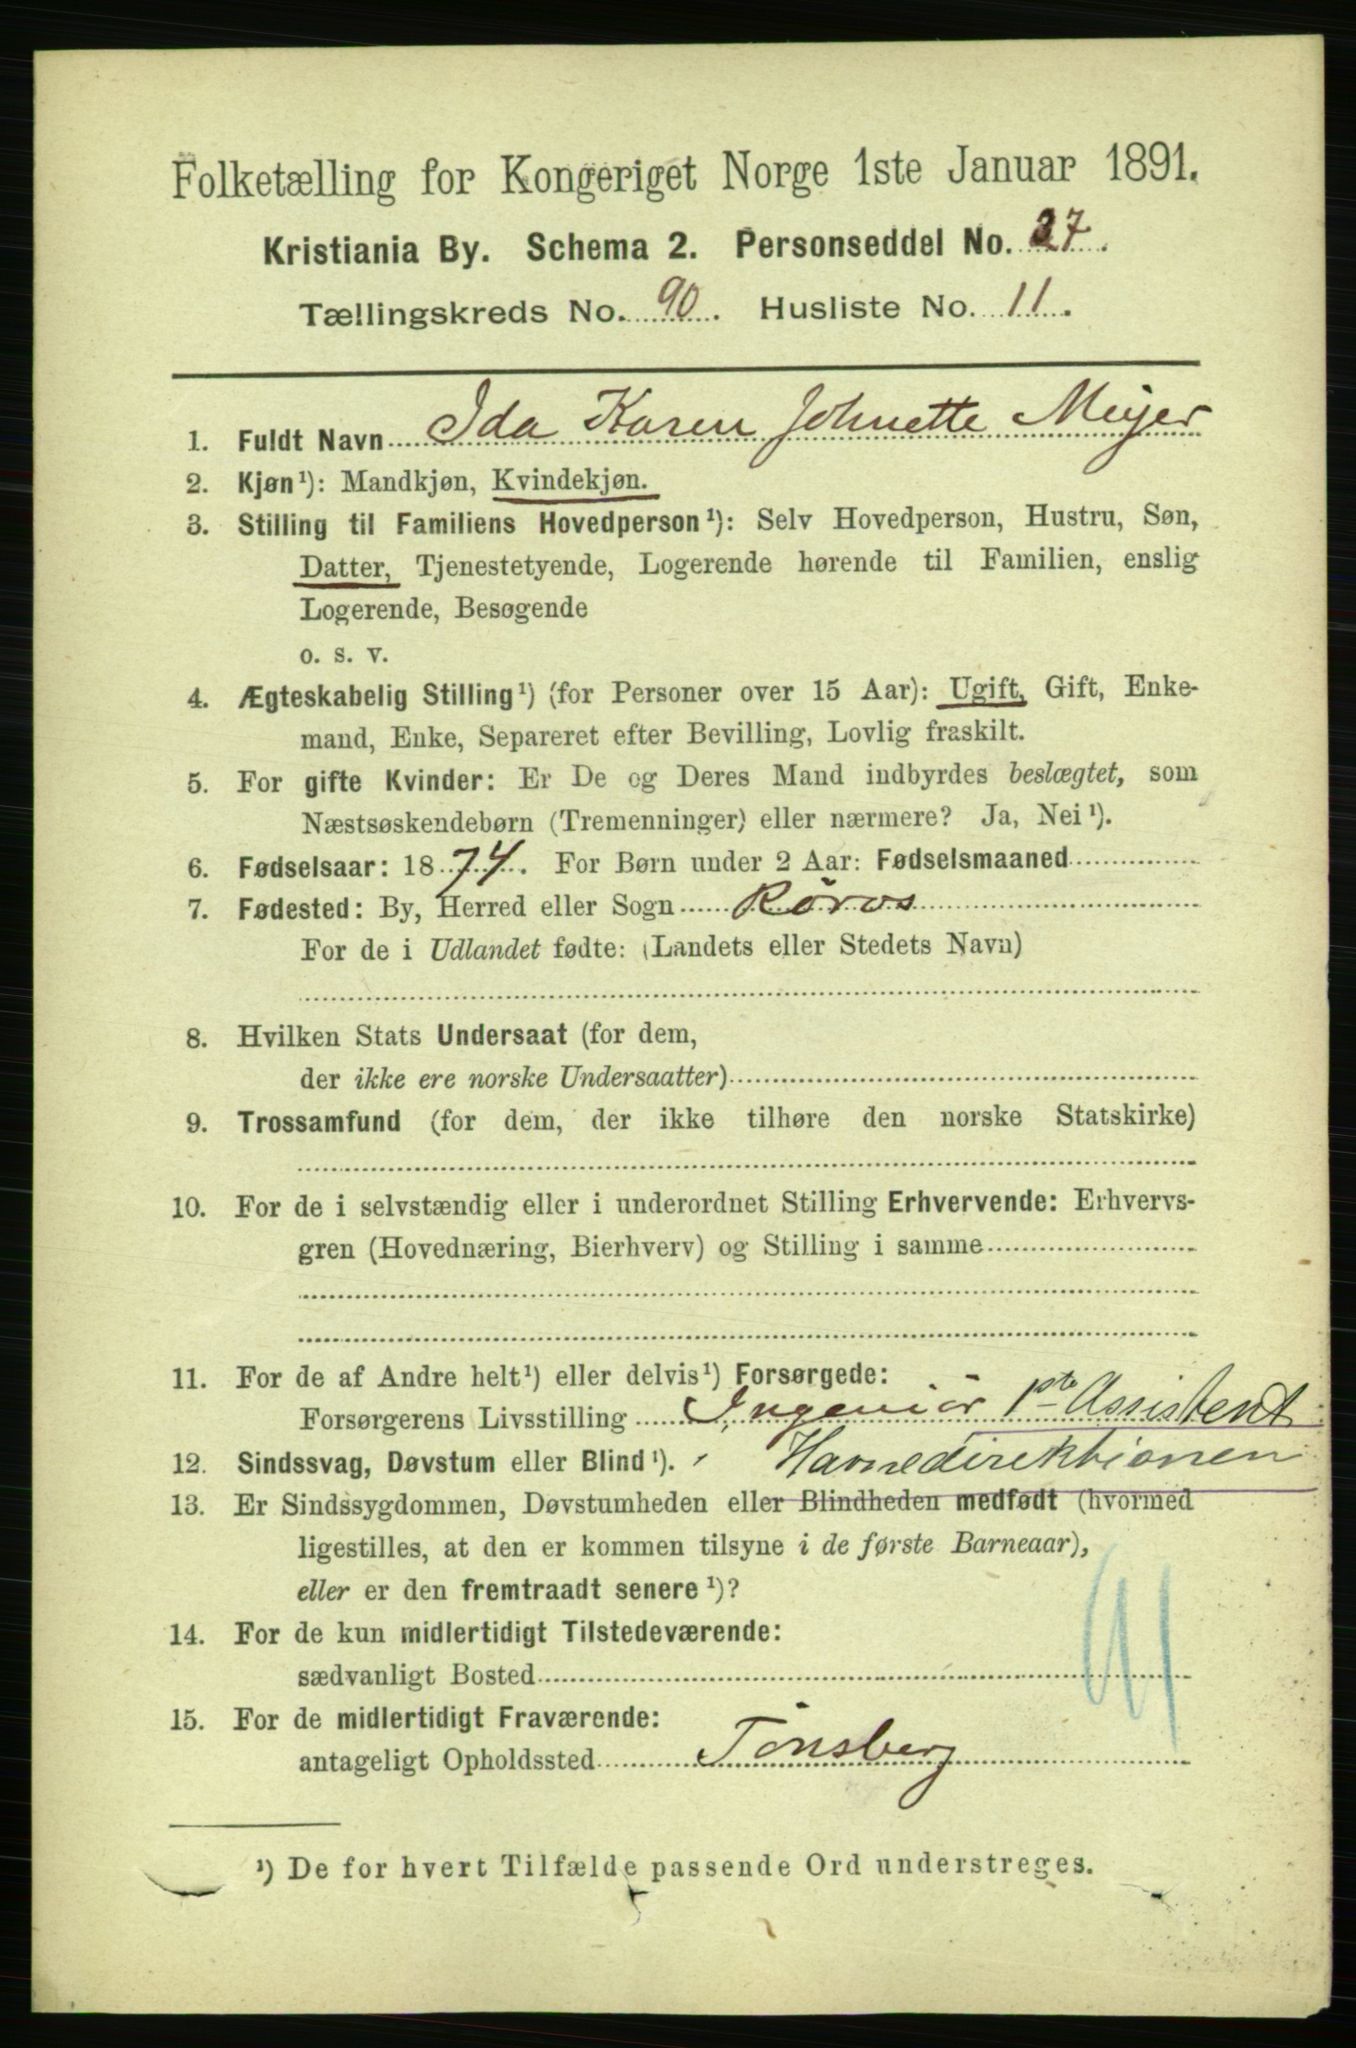 Folketælling for Kongeriget Norge 1ste Januar 1891.
Kristiania By. Schema 2. Personseddel No. 27.
Tællingskreds No. 90. Husliste No. 11.
1. Fuldt Navn Ida Karen Johnette Meyer
2. Kjøn¹): Mandkjøn, Kvindekjøn.
3. Stilling til Familiens Hovedperson¹): Selv Hovedperson, Hustru, Søn,
Datter, Tjenestetyende, Logerende hørende til Familien, enslig
Logerende, Besøgende
o. s. v.
4. Ægteskabelig Stilling¹) (for Personer over 15 Aar): Ugift, Gift, Enke-
mand, Enke, Separeret efter Bevilling, Lovlig fraskilt.
5. For gifte Kvinder: Er De og Deres Mand indbyrdes beslægtet, som
Næstsøskendebørn (Tremenninger) eller nærmere? Ja, Nei¹).
6. Fødselsaar: 1874. For Børn under 2 Aar: Fødselsmaaned
7. Fødested: By, Herred eller Sogn Röros
For de i Udlandet fødte: (Landets eller Stedets Navn)
8. Hvilken Stats Undersaat (for dem,
der ikke ere norske Undersaatter)
9. Trossamfund (for dem, der ikke tilhøre den norske Statskirke)
10. For de i selvstændig eller i underordnet Stilling Erhvervende: Erhvervs-
gren (Hovednæring, Bierhverv) og Stilling i samme
11. For de af Andre helt¹) eller delvis¹) Forsørgede:
Forsørgerens Livsstilling Ingeniör 1ste Assistent
12. Sindssvag, Døvstum eller Blind¹). i Havnedirektionen
13. Er Sindssygdommen, Døvstumheden eller Blindheden medfødt (hvormed
ligestilles, at den er kommen tilsyne i de første Barneaar),
eller er den fremtraadt senere¹)?
14. For de kun midlertidigt Tilstedeværende:
sædvanligt Bosted
15. For de midlertidigt Fraværende:
antageligt Opholdssted Tönsberg
¹) De for hvert Tilfælde passende Ord understreges.